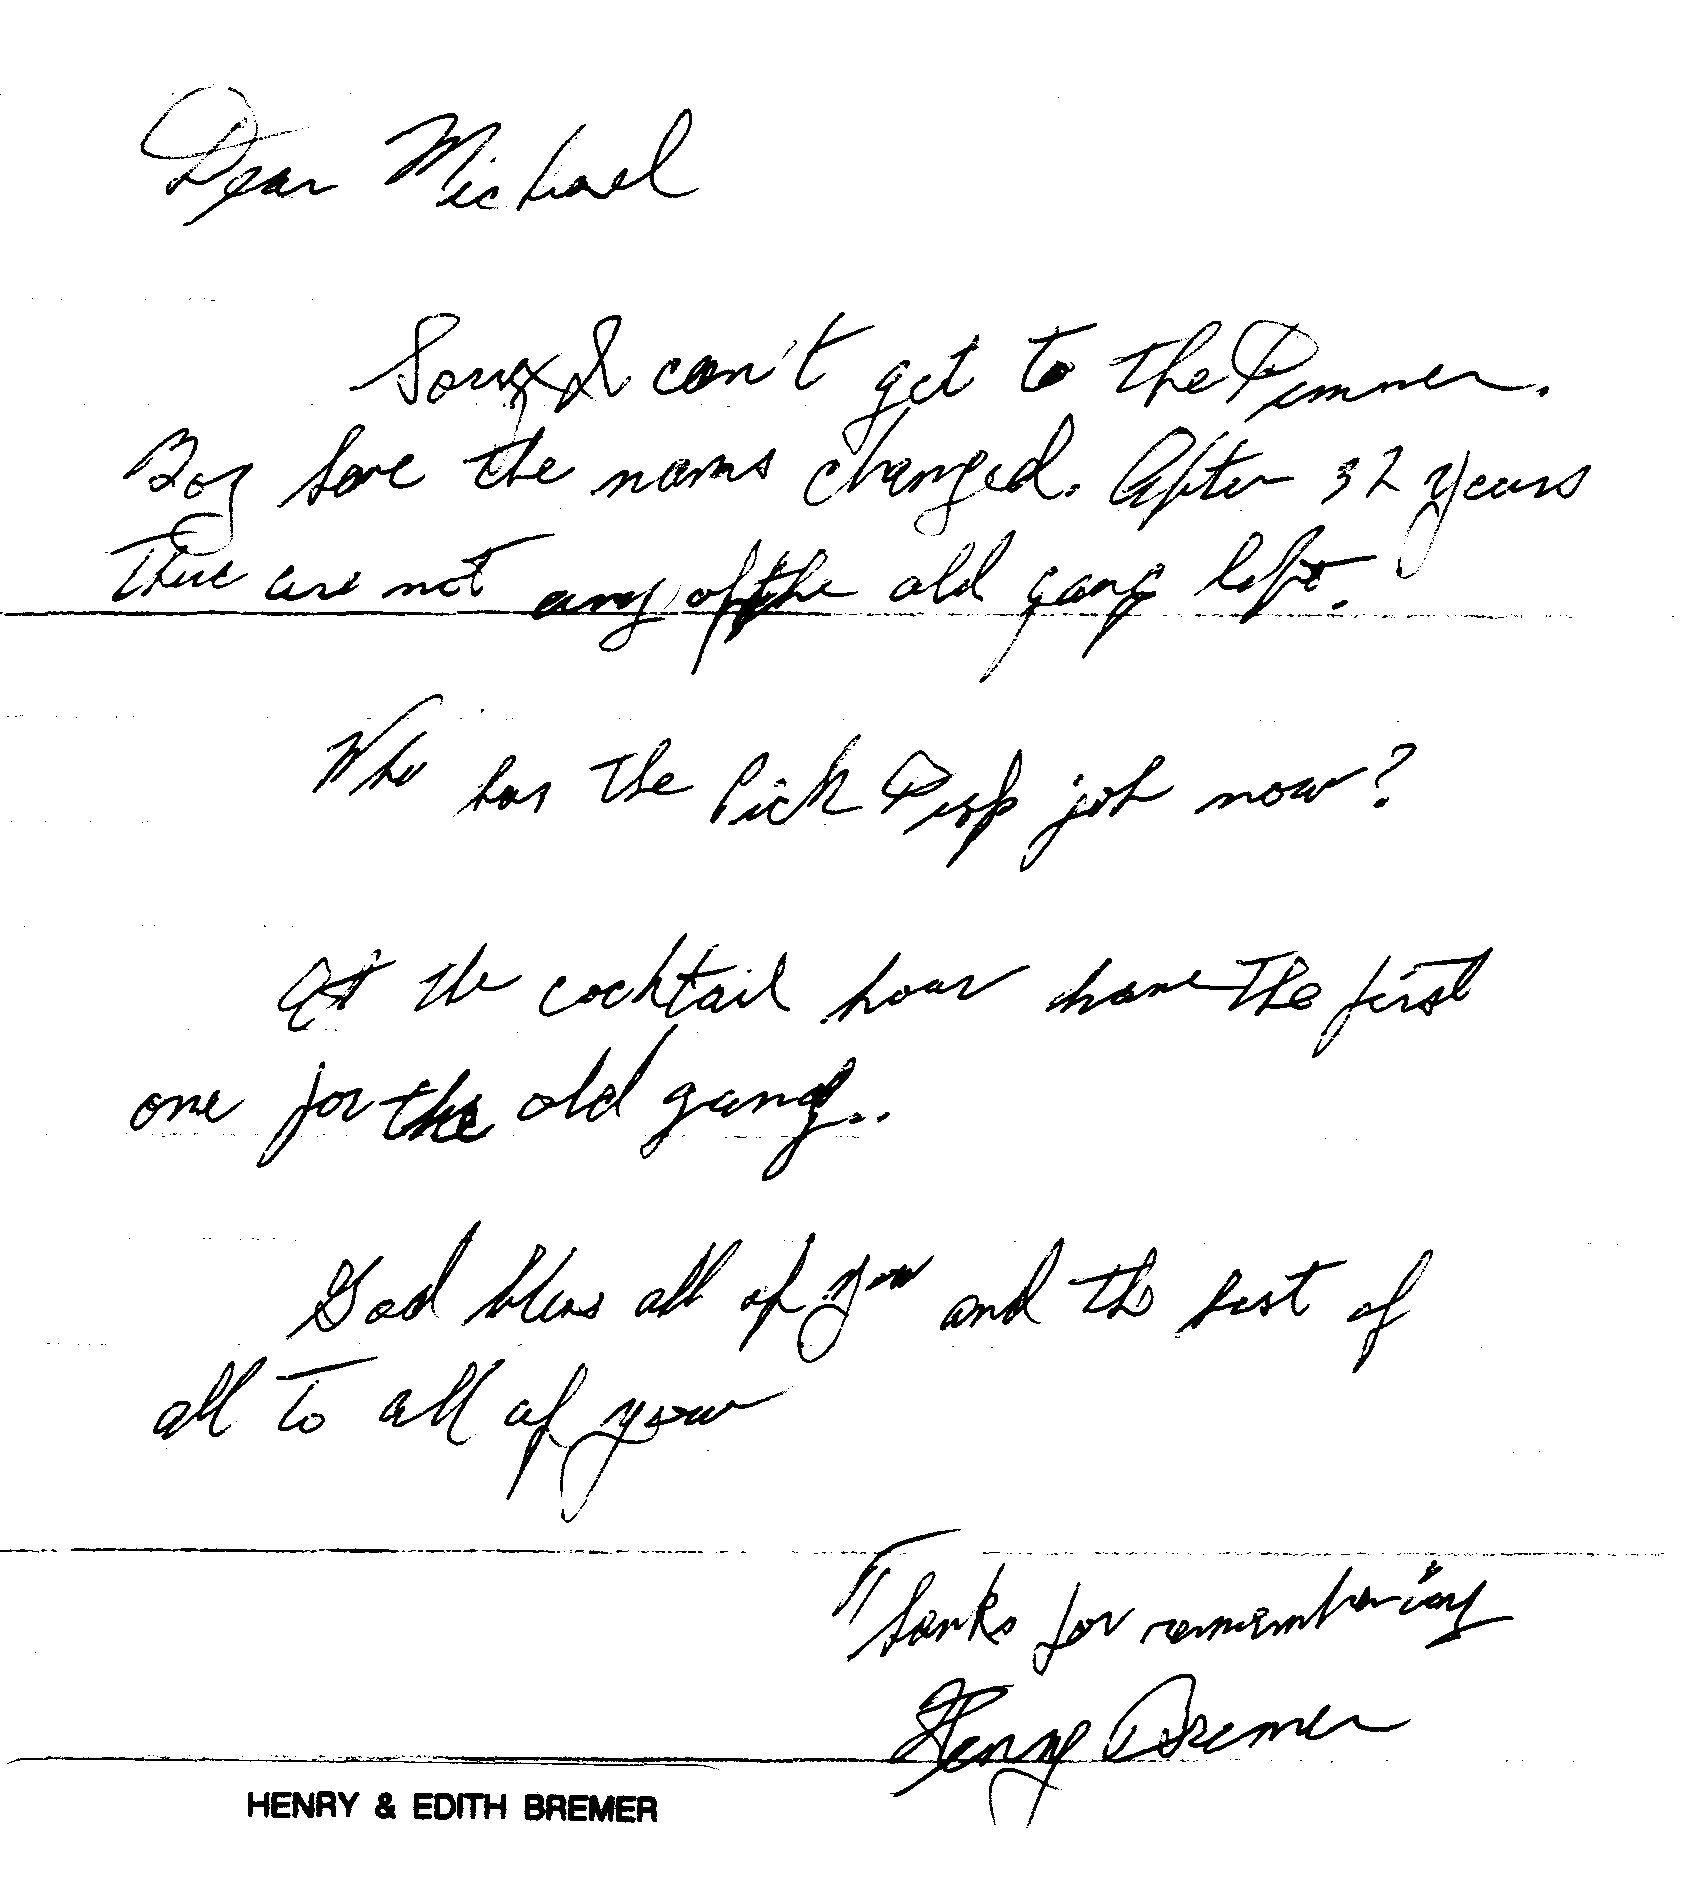 Dear Michael
Sorry I can't get to the Dinner.
Boy have the names changed. After 32 years
there are not any of the old gang left.
Who has the Pick Disp job now?
At the cocktail hour have the first
one for the old gang..
God bless all of you and the best of
all to all of you
Thanks for remembering
Henry Bremer
HENRY & EDITH BREMER